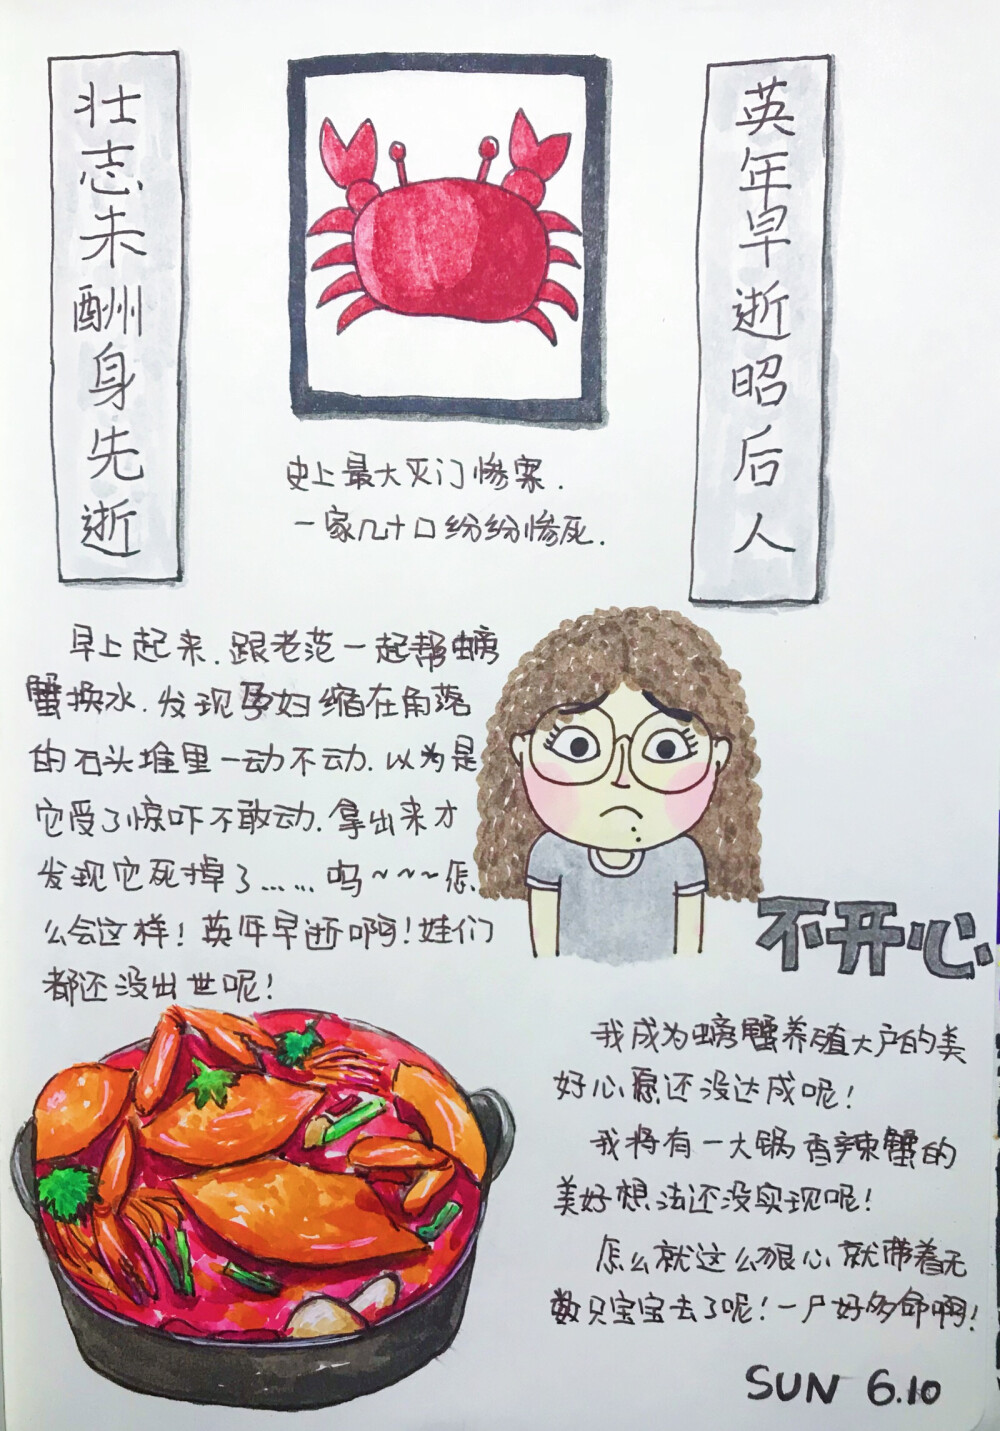 壮志未酬身先逝
英年早逝昭后人
史上最大灭门惨案.
一家几十口纷纷惨死.
早上起来.跟老范一起帮螃
蟹换水.发现孕妇缩在角落
的石头堆里一动不动.以为是
它受了惊吓不敢动.拿出来才
发现它死掉了……呜~~~怎
么会这样!英年早逝啊!娃们
都还没出世呢!
不开心
我成为螃蟹养殖大户的美
好心愿还没达成呢!
我将有一大锅香辣蟹的
美好想法还没实现呢!
怎么就这么狠心就带着无
数只宝宝去了呢!一尸好多命啊!
SUN 6.10